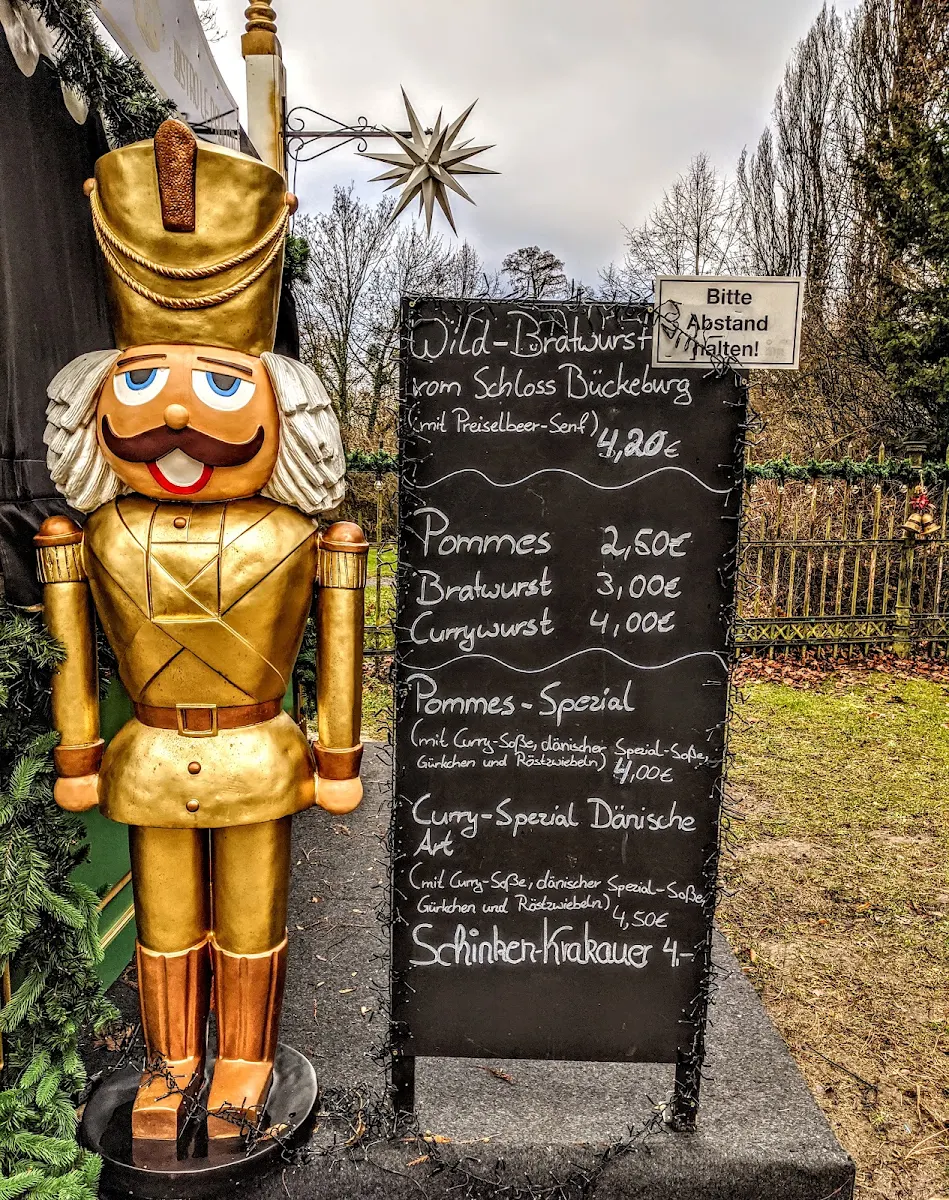 Bitte
Abstand
halten!
Wild-Bratwurst
vom Schloss Bückeburg
(mit Preiselbeer-Senf)
4,20€
Pommes 2,50€
Bratwurst 3,00€
Currywurst 4,00€
Pommes-Spezial
(mit Curry-Soße, dänischer Spezial-Soße,
Gürkchen und Röstzwiebeln) 4,00€
Curry-Spezial Dänische
Art
(mit Curry-Soße, dänischer Spezial-Soße,
Gürkchen und Röstzwiebeln) 4,50€
Schinken-Krakauer 4,-